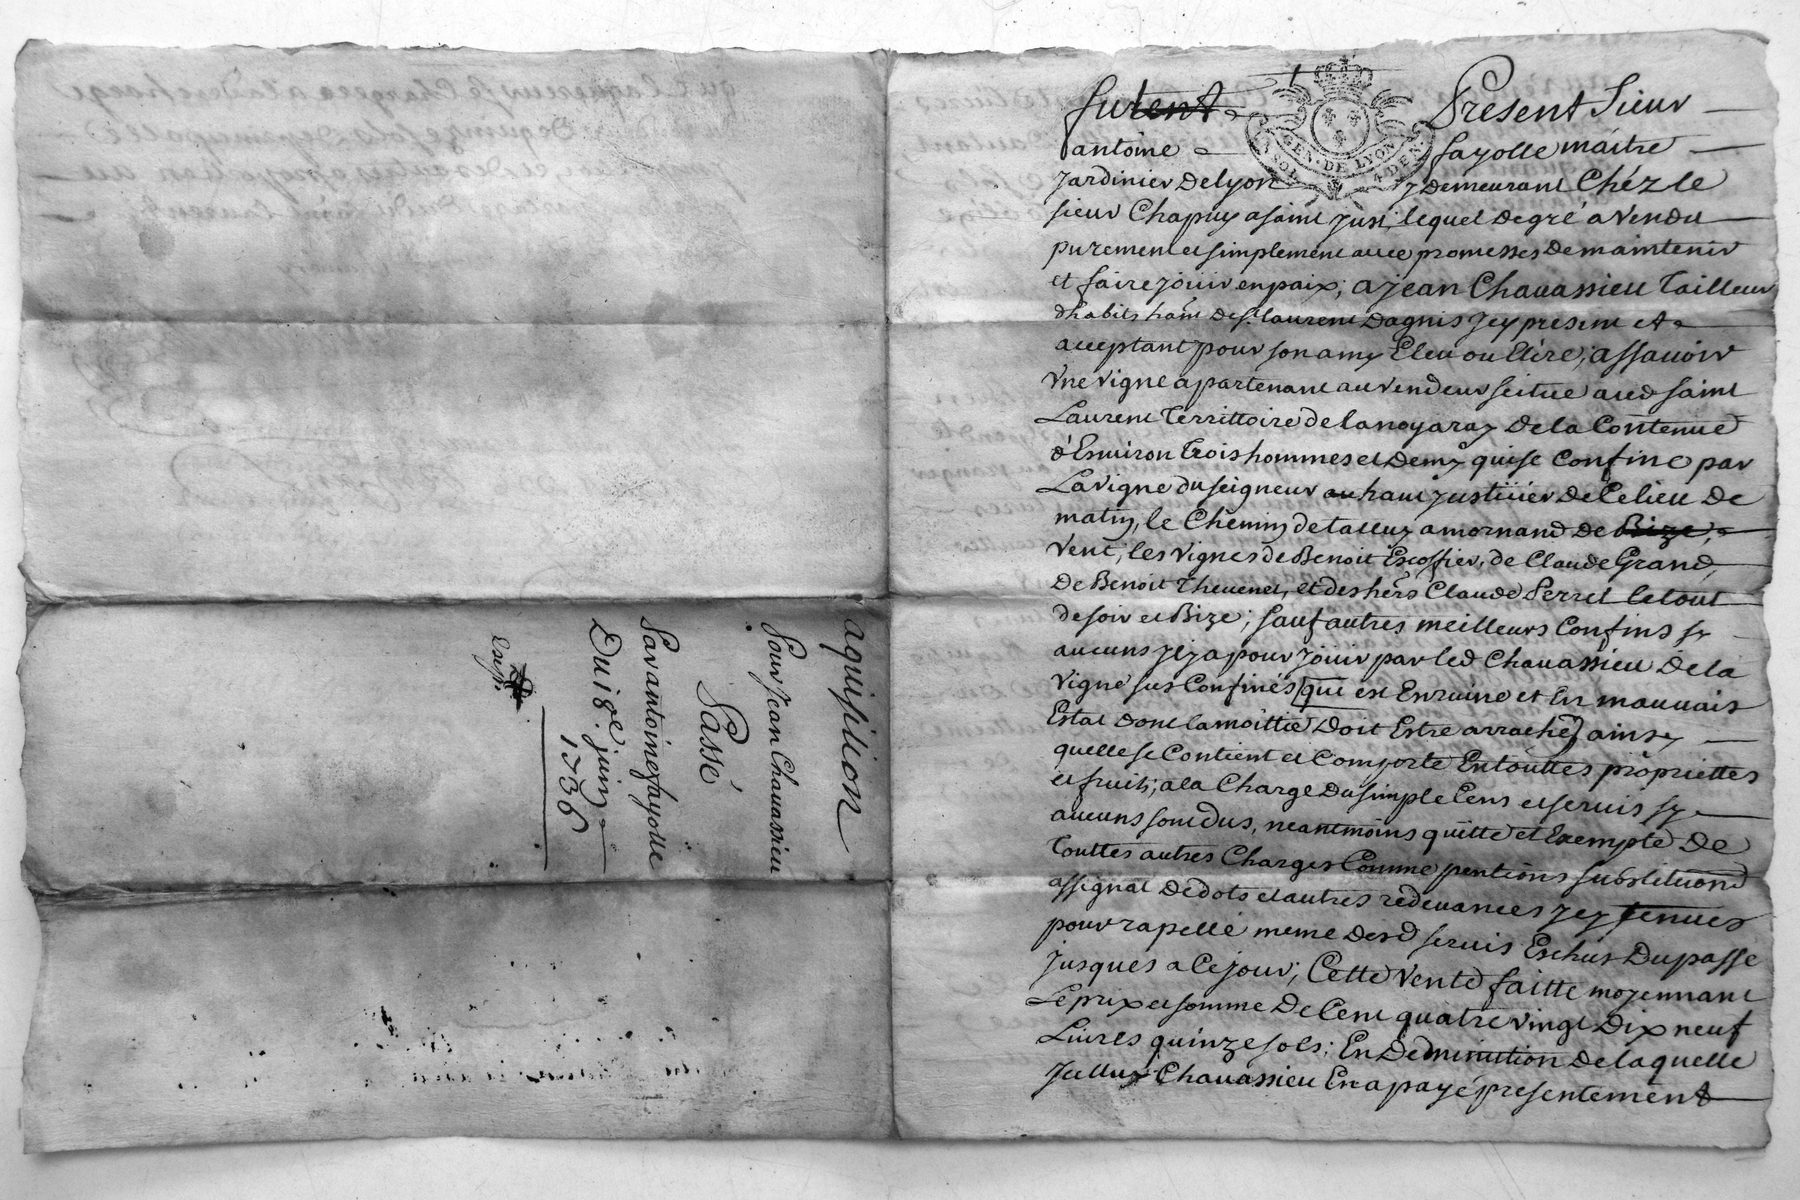 aquisition
Pour Jean Chauassieu
Passé
Par antoine fayolle
Du 18e juin
1736
Exp.
furent Present Sieur
GEN. DE LYON
antoine fayolle maitre
Jardinier de lyon y demeurant Chéz le
sieur Chapuy a saint Just; lequel de gré a vendu
purement et simplement auec promesses de maintenir
et faire joüir en paix; a jean Chauassieu Tailleur
dhabits hant de st laurent Dagnis Jcy present et
acceptant pour son amy Eleu ou Elire; assauoir
vne vigne apartenant au vendeur scitué aud saint
Laurent Territtoire de la noyaray de la Contenue
d'Enuiron trois hommes et demy qui se Confine par
La vigne du seigneur haut justicier de Ce lieu de
matin, le Chemin de talluy a mornand de
vent; les vignes de Benoit Escoffier, de Claude Grand,
De Benoit Theuenet, et des hers Claude Perret le tout
de soir et Bize; sauf autres meilleurs Confins sy
aucuns Jl y a pour Joüir par led Chauassieu de la
vigne sus Confinés (qui est En ruine et En mauuais
Estat dont la moittié doit Estre arraché) ainsy
quelle se Contient et Comporte En touttes propriettes
et fruits; a la Charge du simple Cens et seruis sy
aucuns sont dus, neantmoins quitte et Exempte de
Touttes autres Charges Comme pentions substitutions
assignat de dots et autres redeuances Jcy tenues
pour rapellé meme desd seruis Echus du passé
Jusques a Ce jour; Cette vente faitte moyennant
Le prix et somme de Cent quatre vingt dix neuf
Liures quinze sols; En deminution de laquelle
Jcelluy Chauassieu En a payé presentement